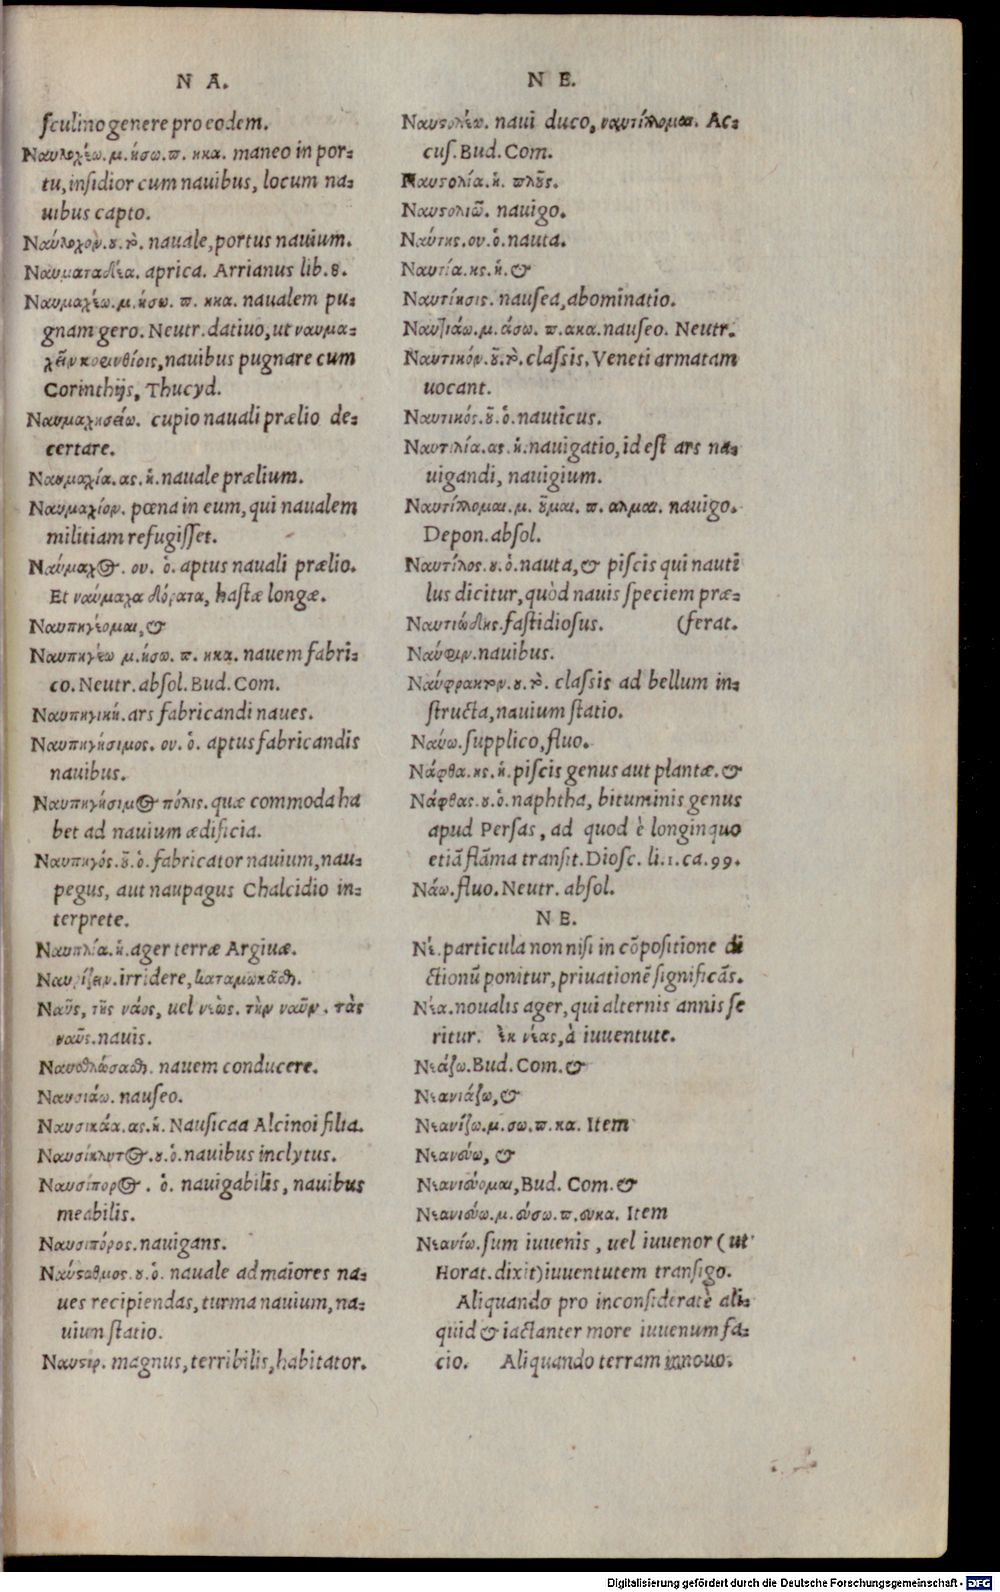 N A.
sculino genere pro eodem.
Ναυλοχέω. μ. ήσω. π. ηκα. maneo in por=
tu, insidior cum nauibus, locum na=
uibus capto.
Ναύλοχον. ου. τὸ. nauale, portus nauium.
Ναυματαδέα. aprica. Arrianus lib. 8.
Ναυμαχέω. μ. ήσω. π. ηκα. naualem pu=
gnam gero. Neutr. datiuo, ut ναυμα=
χεῖν κορινθίοις, nauibus pugnare cum
Corinthijs, Thucyd.
Ναυμαχησείω. cupio nauali prælio de=
certare.
Ναυμαχία. ας. ἡ. nauale prælium.
Ναυμαχίον. pœna in eum, qui naualem
militiam refugisset.
Ναύμαχος. ου. ὁ. aptus nauali prælio.
Et ναύμαχα δόρατα, hastæ longæ.
Ναυπηγέομαι, &
Ναυπηγέω μ. ήσω. π. ηκα. nauem fabri=
co. Neutr. absol. Bud. Com.
Ναυπηγική. ars fabricandi naues.
Ναυπηγήσιμος. ου. ὁ. aptus fabricandis
nauibus.
Ναυπηγήσιμος πόλις. quæ commoda ha
bet ad nauium ædificia.
Ναυπηγός. οῦ. ὁ. fabricator nauium, nau=
pegus, aut naupagus Chalcidio in=
terprete.
Ναυπλία. ἡ. ager terræ Argiuæ.
Ναυρίζειν. irridere, καταμωκᾶσθαι.
Ναῦς, τῆς νάος, uel νεὼς. τὴν ναῦν. τὰς
ναῦς. nauis.
Ναυσθλώσασθαι. nauem conducere.
Ναυσιάω. nauseo.
Ναυσικάα. ας. ἡ. Nausicaa Alcinoi filia.
Ναυσίκλυτος. ου. ὁ. nauibus inclytus.
Ναυσίπορος. ὁ. nauigabilis, nauibus
meabilis.
Ναυσιπόρος. nauigans.
Ναύσταθμος. ου. ὁ. nauale ad maiores na=
ues recipiendas, turma nauium, na=
uium statio.
Ναυστρ. magnus, terribilis, habitator.
N E.
Ναυστολέω. naui duco, ναυτίλλομαι. Ac=
cus. Bud. Com.
Ναυστολία. ἡ. πλοῦς.
Ναυστολιῶ. nauigo.
Ναύτης. ου. ὁ. nauta.
Ναυτία. ης. ἡ. &
Ναυτίησις. nausea, abominatio.
Ναυτιάω. μ. άσω. π. ακα. nauseo. Neutr.
Ναυτικόν. οῦ. τὸ. classis. Veneti armatam
uocant.
Ναυτικός. οῦ. ὁ. nauticus.
Ναυτιλία. ας. ἡ. nauigatio, id est ars na=
uigandi, nauigium.
Ναυτίλλομαι. μ. οῦμαι. π. αλμαι. nauigo.
Depon. absol.
Ναυτίλος. ου. ὁ. nauta, & piscis qui nauti
lus dicitur, quòd nauis speciem præ=
Ναυτιώδης. fastidiosus. (ferat.
Ναύφιν. nauibus.
Ναύφρακτον. ου. τὸ. classis ad bellum in=
structa, nauium statio.
Ναύω. supplico, fluo.
Νάφθα. ης. ἡ. piscis genus aut plantæ. &
Νάφθας. ου. ὁ. naphtha, bituminis genus
apud Persas, ad quod è longinquo
etiā flāma transit. Diosc. li. 1. ca. 99.
Νάω. fluo. Neutr. absol.
N E.
Νὲ. particula non nisi in cōpositione di
ctionū ponitur, priuationē significās.
Νέα. noualis ager, qui alternis annis se
ritur. ἐκ νέας, à iuuentute.
Νεάζω. Bud. Com. &
Νεανιάζω, &
Νεανίζω. μ. σω. π. κα. Item
Νεανεύω, &
Νεανιεύομαι, Bud. Com. &
Νεανιεύω. μ. εύσω. π. ευκα. Item
Νεανίω. sum iuuenis, uel iuuenor (ut
Horat. dixit) iuuentutem transigo.
Aliquando pro inconsideratè ali=
quid & iactanter more iuuenum fa=
cio. Aliquando terram innouo.
Digitalisierung gefördert durch die Deutsche Forschungsgemeinschaft - DFG